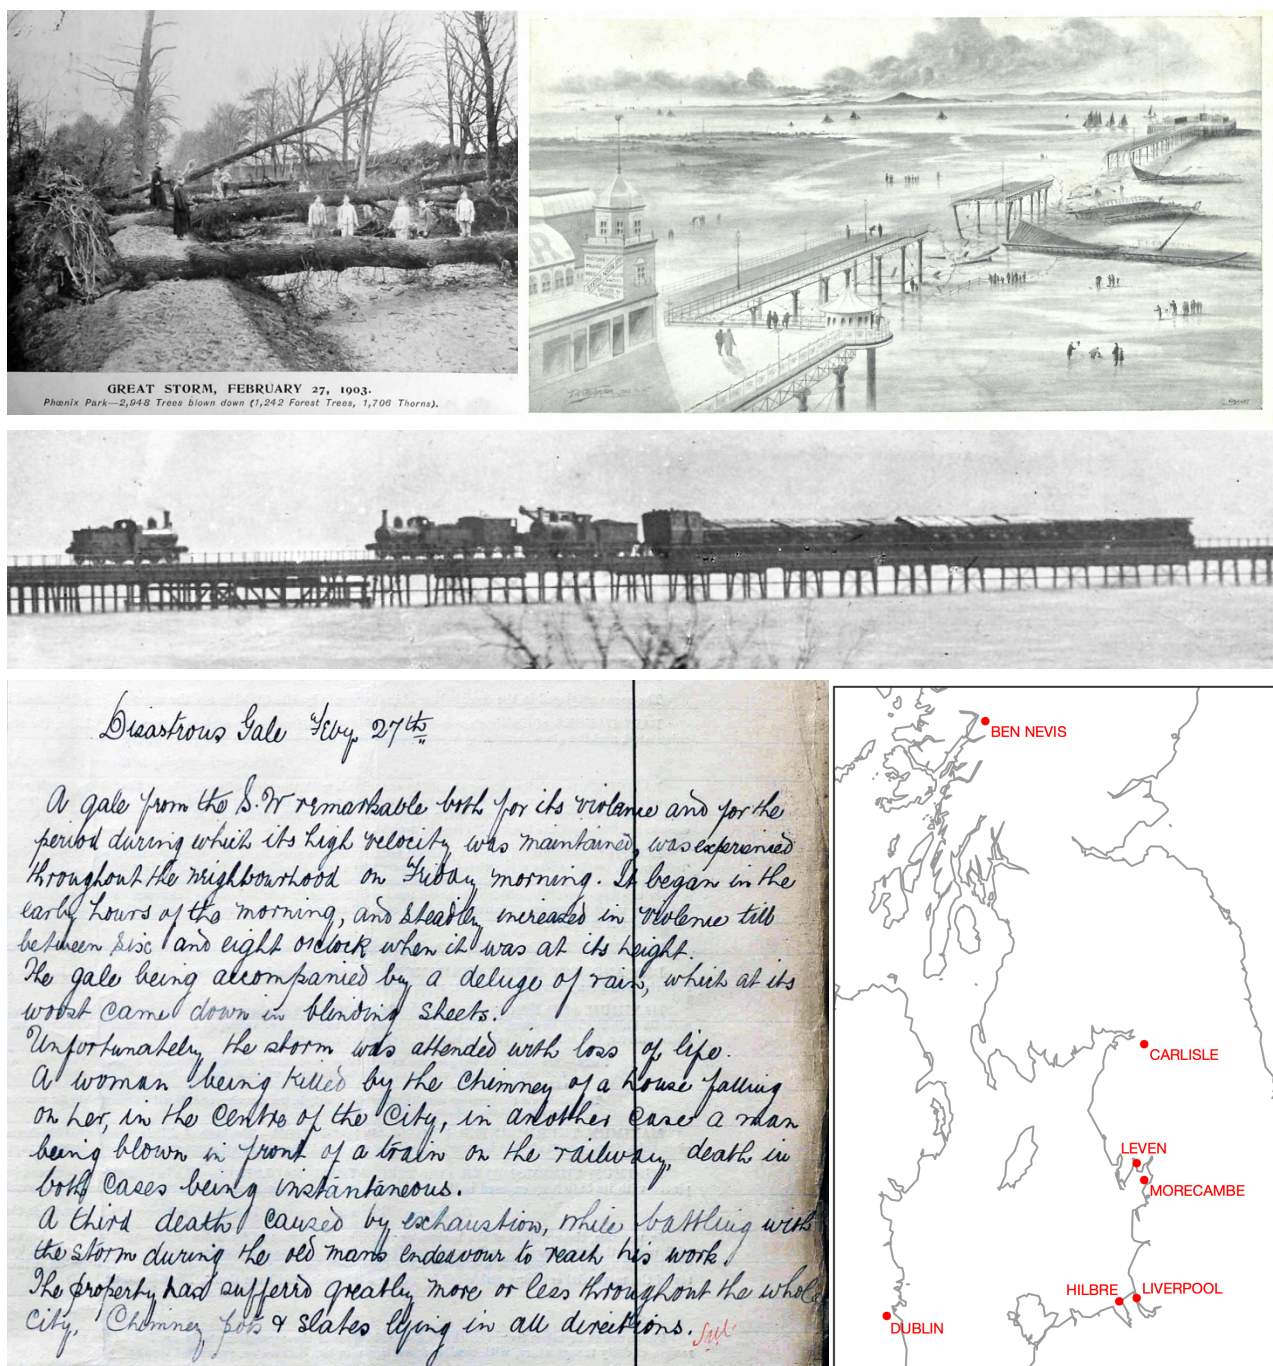 GREAT STORM, FEBRUARY 27, 1903.
Phœnix Park—2,948 Trees blown down (1,242 Forest Trees, 1,706 Thorns).
R
Disastrous Gale Feby. 27th
A gale from the S.W remarkable both for its violence and for the
period during which its high velocity was maintained, was experienced
throughout the neighbourhood on Friday morning. It began in the
early hours of the morning, and steadily increased in violence till
between six and eight o'clock when it was at its height.
The gale being accompanied by a deluge of rain, which at its
worst came down in blinding sheets.
Unfortunately the storm was attended with loss of life.
A woman being killed by the chimney of a house falling
on her, in the centre of the city, in another case a man
being blown in front of a train on the railway, death in
both cases being instantaneous.
A third death caused by exhaustion, while battling with
the storm during the old mans endeavour to reach his work.
The property has suffered greatly more or less throughout the whole
city. Chimney pots & slates lying in all directions.
BEN NEVIS
CARLISLE
LEVEN
MORECAMBE
HILBRE
LIVERPOOL
DUBLIN